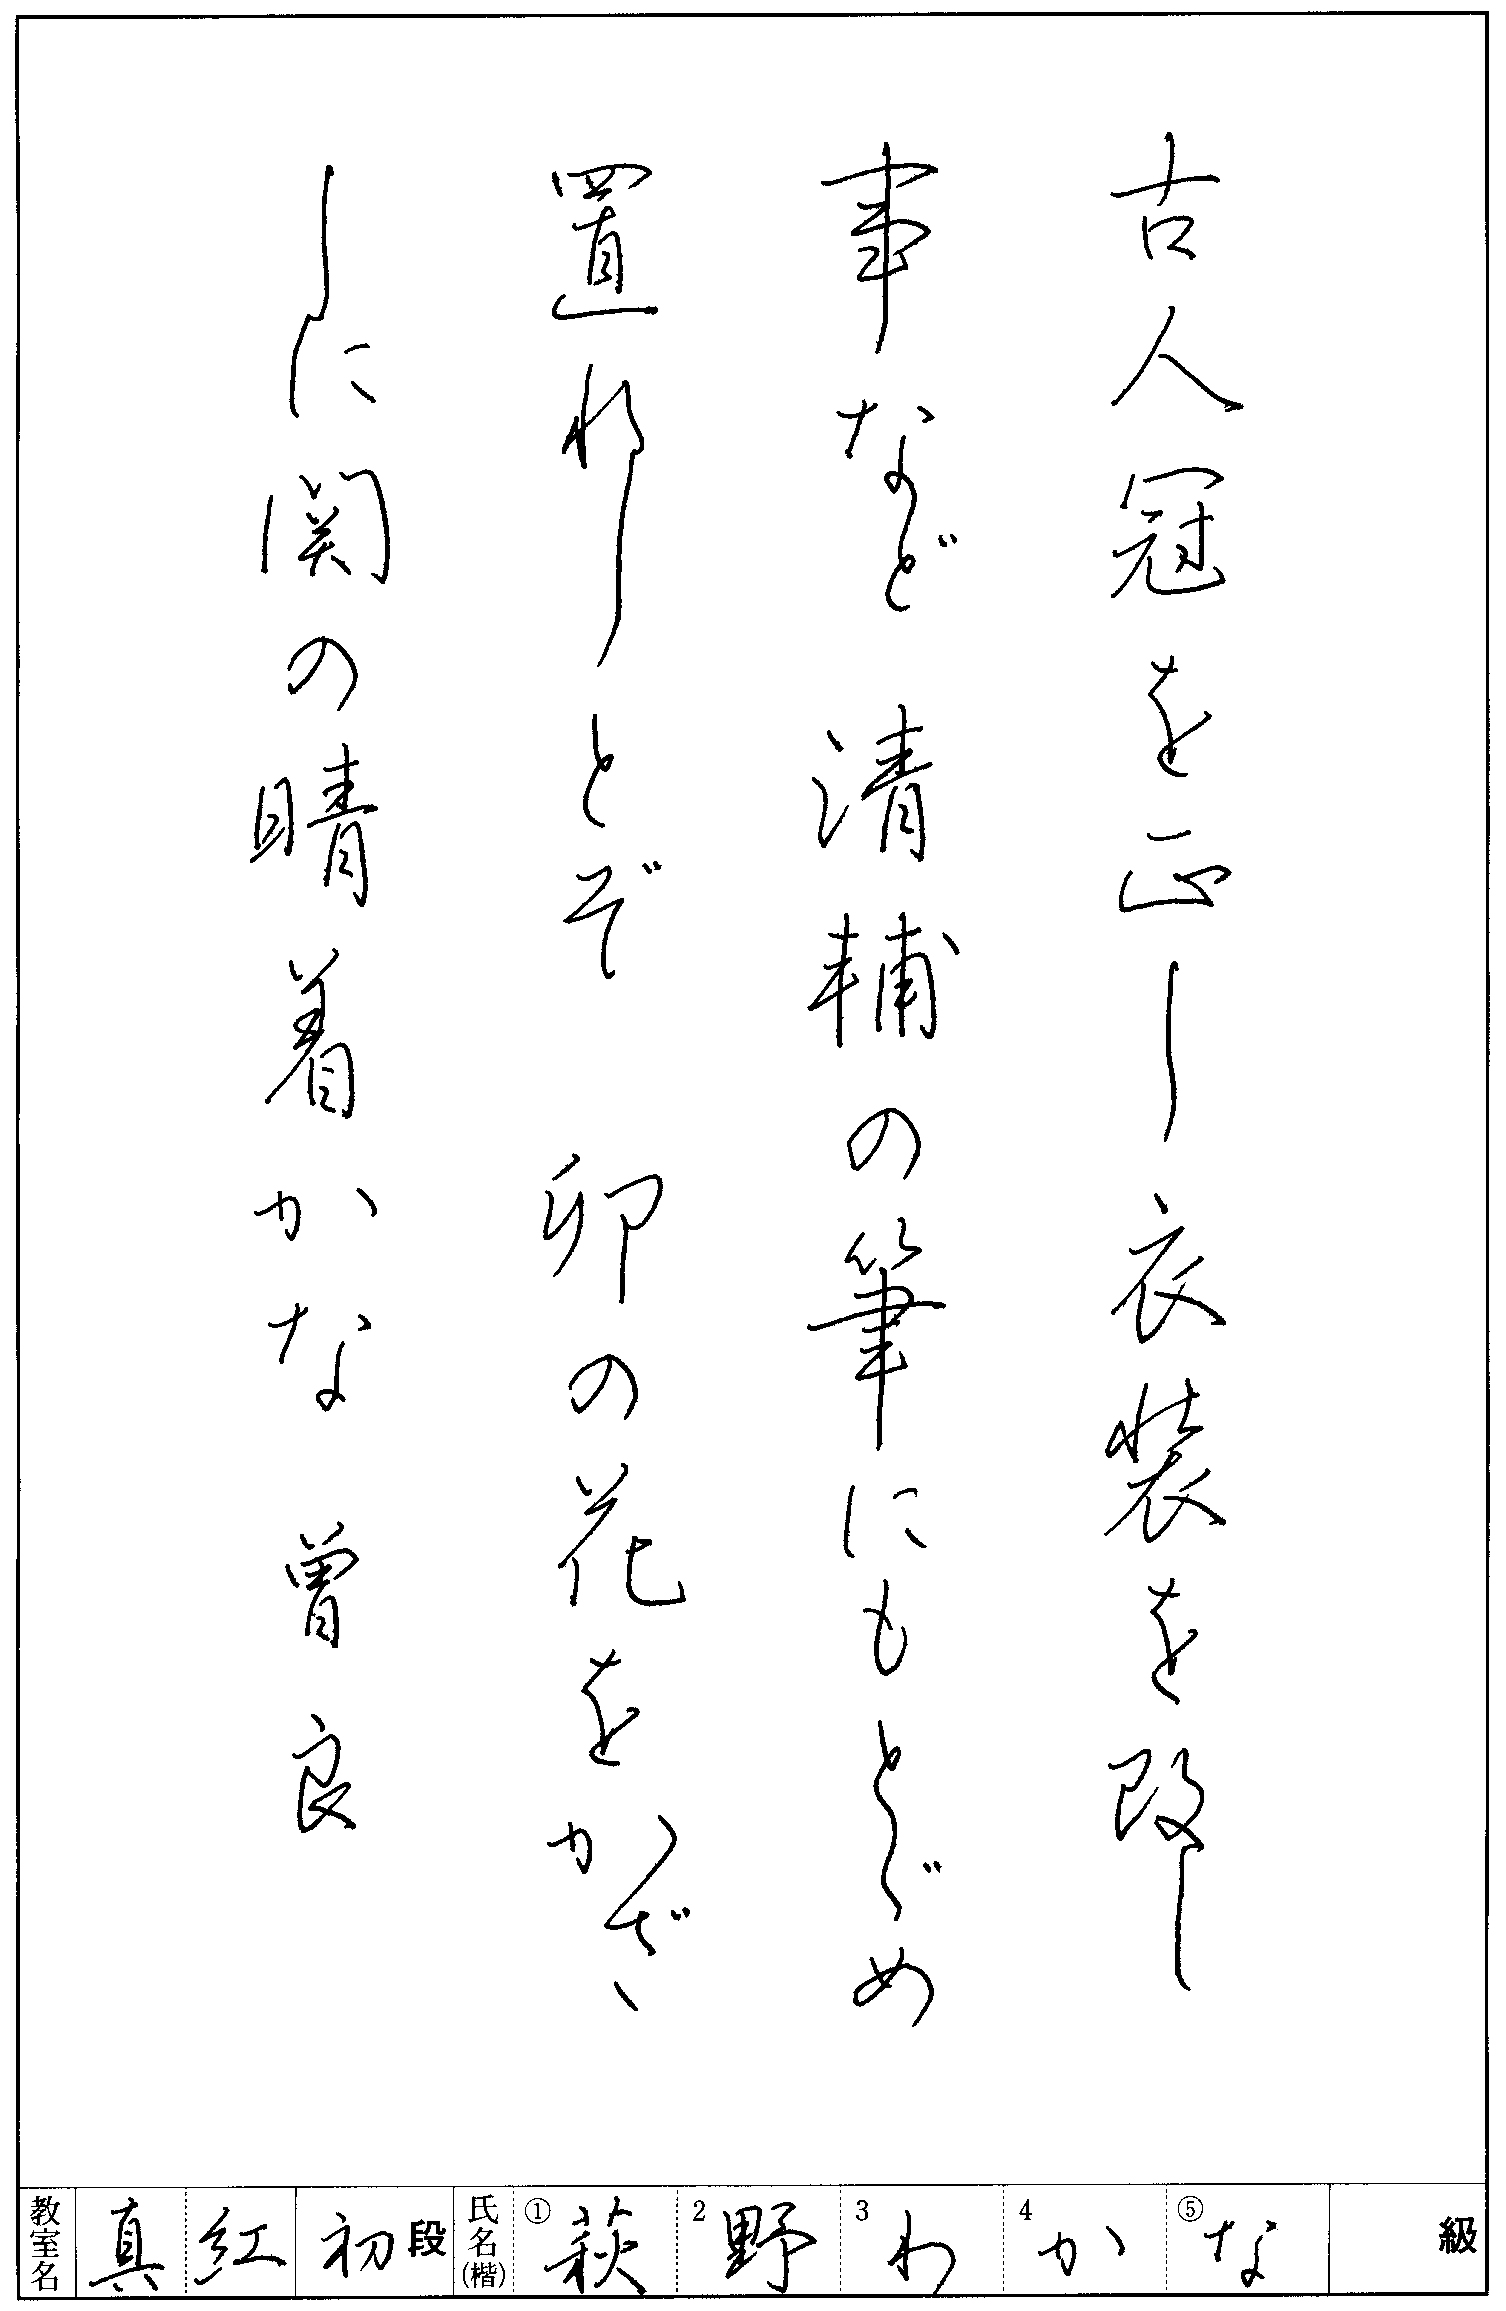 古人冠を正し衣装を改し
事など清輔の筆にもとゞめ
置れしとぞ　卯の花をかざ
しに関の晴着かな　曽良
教室名 真紅 初段 氏名(楷) ①萩 2野 3わ 4か ⑤な 級